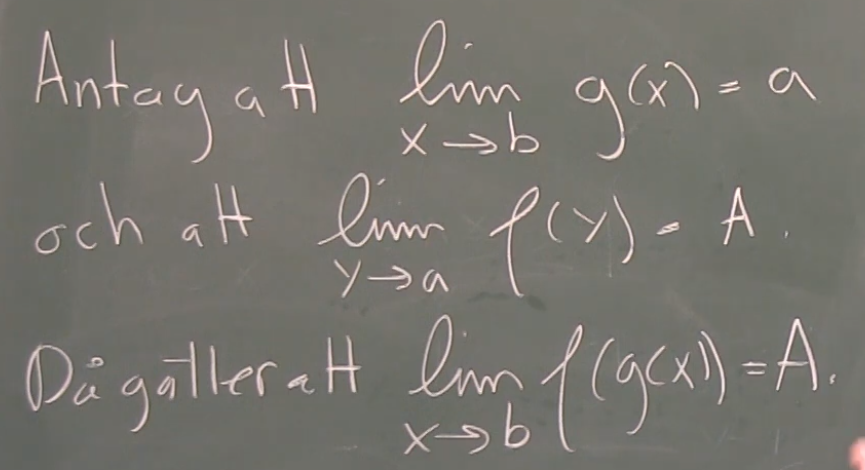 Antag att lim g(x) = a
x→b
och att lim f(y) = A.
y→a
Då gäller att lim f(g(x)) = A.
x→b